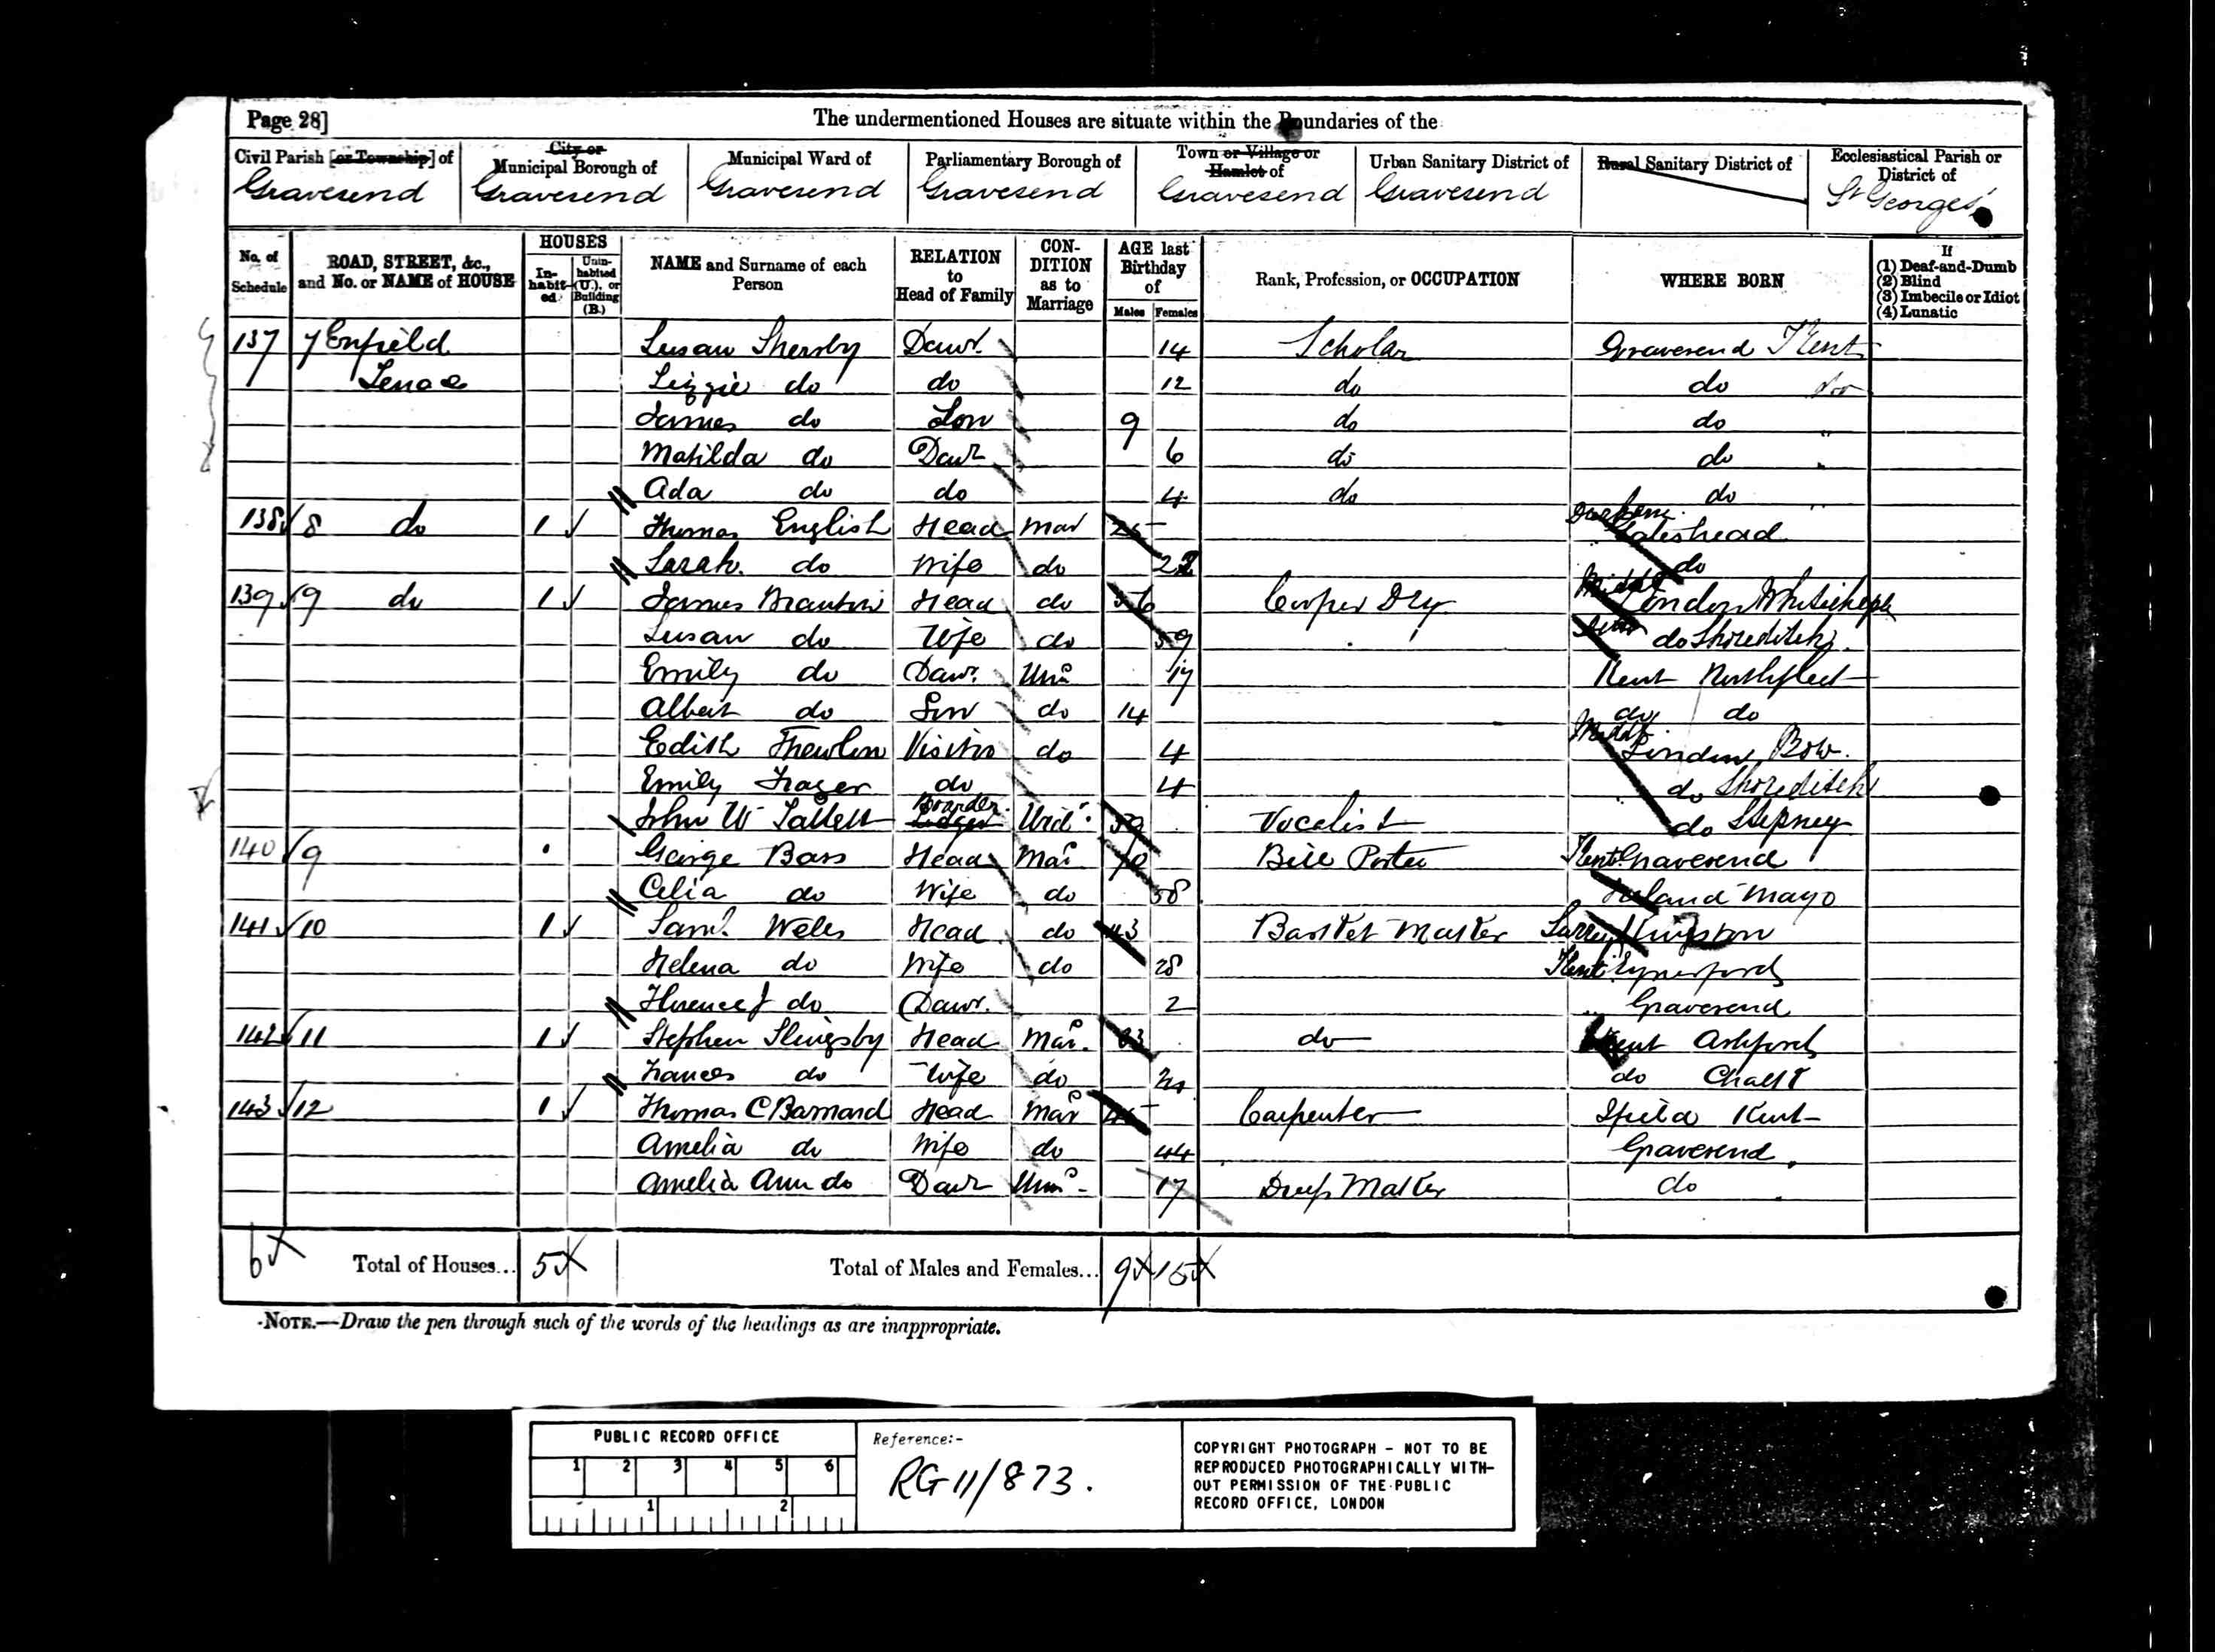 Page 28]
The undermentioned Houses are situate within the Boundaries of the
Civil Parish [or Township] of
Gravesend
City or Municipal Borough of
Gravesend
Municipal Ward of
Gravesend
Parliamentary Borough of
Gravesend
Town or Village or Hamlet of
Gravesend
Urban Sanitary District of
Gravesend
Rural Sanitary District of
Ecclesiastical Parish or District of
St Georges
No. of Schedule
ROAD, STREET, &c., and No. or NAME of HOUSE
HOUSES
In-habit-ed
Unin-habited (U.), or Building (B.)
NAME and Surname of each Person
RELATION to Head of Family
CON-DITION as to Marriage
AGE last Birthday of
Males Females
Rank, Profession, or OCCUPATION
WHERE BORN
If
(1) Deaf-and-Dumb
(2) Blind
(3) Imbecile or Idiot
(4) Lunatic
137 7 Enfield Susan Daur. 14 Scholar Gravesend Kent
Lizzie do do 12 do do do
James do Son 9 do do
Matilda do Daur 6 do do
Ada do do 4 do do
138 8 do 1 Thomas English Head Mar 25 Durham Gateshead
Sarah do Wife do do
139 9 do 1 James Head do 56 Cooper Dry Middx London Whitechaple
Susan do Wife do 59 do Shoreditch
Emily do Daur. Unm 17 Kent Northfleet
Albert do Son do 14 do do
Edith Visitor do 4 Middx London Bow
Emily do 4 do Shoreditch
John W Boarder Lodger Wid. 59 Vocalist do Stepney
140 9 George Bass Head Mar 70 Bill Poster Kent Gravesend
Celia do Wife do 58 Ireland Mayo
141 10 1 Saml. Head do 43 Basket Maker Surrey Kingston
Helena do Wife do 28 Kent Eynesford
Florence J do Daur. 2 Gravesend
142 11 1 Stephen Slingsby Head Mar. do Kent Ashford
Frances do Wife do do Chalk
143 12 1 Thomas C Barnard Head Mar 45 Carpenter Ifield Kent
Amelia do Wife do 44 Gravesend
Amelia Ann do Daur Unm 17 Dress Maker do
6 Total of Houses... 5 Total of Males and Females... 9 15
NOTE.—Draw the pen through such of the words of the headings as are inappropriate.
PUBLIC RECORD OFFICE
1 2 3 4 5 6
1 2
Reference:-
RG 11/873.
COPYRIGHT PHOTOGRAPH - NOT TO BE
REPRODUCED PHOTOGRAPHICALLY WITH-
OUT PERMISSION OF THE PUBLIC
RECORD OFFICE, LONDON